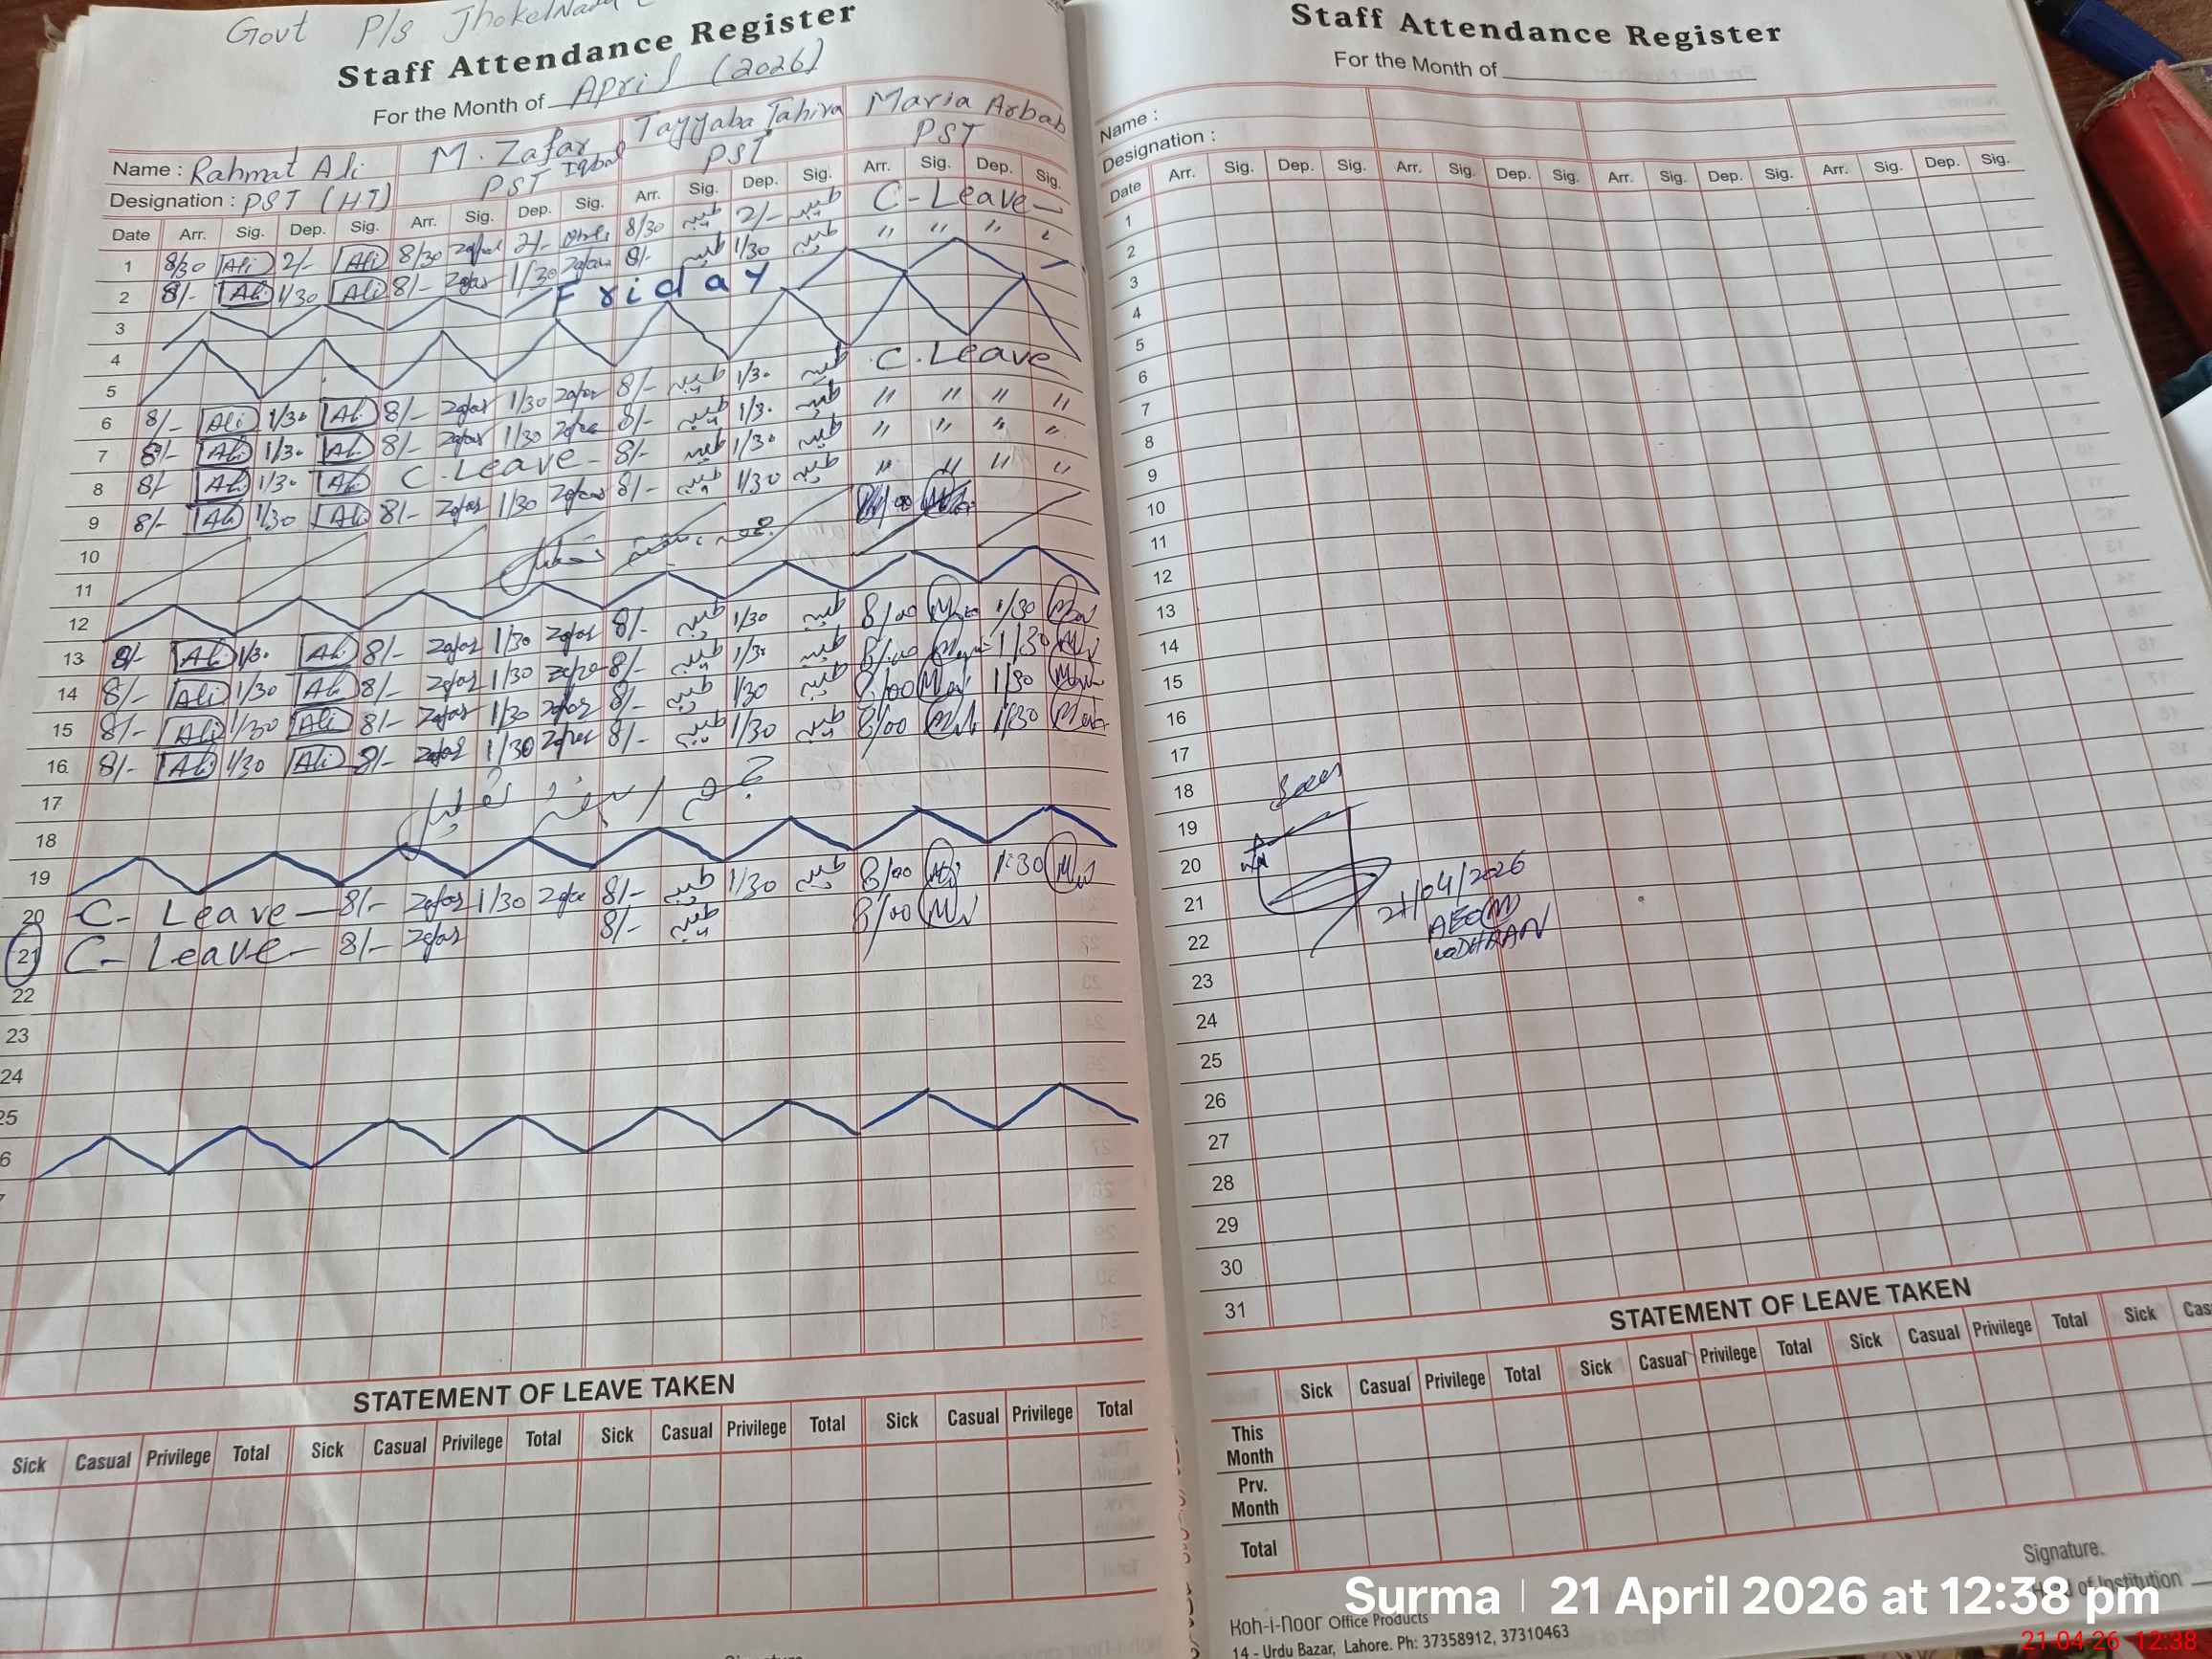 Govt P/s
Staff Attendance Register
For the Month of April (2026)
Name : Rahmat Ali M. Zafar Iqbal Tayyaba Tahira Maria Arbab
Designation : PST (H.T) PST PST PST
Date Arr. Sig. Dep. Sig. Arr. Sig. Dep. Sig. Arr. Sig. Dep. Sig. Arr. Sig. Dep. Sig.
1 8/30 Ali 2/- Ali 8/30 Zafar 2/- 8/30 طیبہ 2/- طیبہ C-Leave-
2 8/- Ali 1/30 Ali 8/- Zafar 1/30 Zafar 8/- طیبہ 1/30 طیبہ " " " "
3 Friday
4
5
6 8/- Ali 1/30 Ali 8/- Zafar 1/30 Zafar 8/- طیبہ 1/30 طیبہ C.Leave
7 8/- Ali 1/30 Ali 8/- Zafar 1/30 Zafar 8/- طیبہ 1/30 طیبہ " " " "
8 8/- Ali 1/30 Ali C.Leave- 8/- طیبہ 1/30 طیبہ " " " "
9 8/- Ali 1/30 Ali 8/- Zafar 1/30 Zafar 8/- طیبہ 1/30 طیبہ " " " "
10 جمعہ ، ہفتہ تعطیل
11
12
13 8/- Ali 1/30 Ali 8/- Zafar 1/30 Zafar 8/- طیبہ 1/30 طیبہ 8/00 1/30
14 8/- Ali 1/30 Ali 8/- Zafar 1/30 Zafar 8/- طیبہ 1/30 طیبہ 8/00 1/30
15 8/- Ali 1/30 Ali 8/- Zafar 1/30 Zafar 8/- طیبہ 1/30 طیبہ 8/00 1/30
16 8/- Ali 1/30 Ali 8/- Zafar 1/30 Zafar 8/- طیبہ 1/30 طیبہ 8/00 1/30
17 تعطیل
18
19
20 C- Leave- 8/- Zafar 1/30 Zafar 8/- طیبہ 1/30 طیبہ 8/00 1:30
21 C- Leave- 8/- Zafar 8/- طیبہ 8/00
22
23
24
25
6
STATEMENT OF LEAVE TAKEN
Sick Casual Privilege Total Sick Casual Privilege Total Sick Casual Privilege Total Sick Casual Privilege Total
Staff Attendance Register
For the Month of
Name :
Designation :
Date Arr. Sig. Dep. Sig. Arr. Sig. Dep. Sig. Arr. Sig. Dep. Sig. Arr. Sig. Dep. Sig.
1
2
3
4
5
6
7
8
9
10
11
12
13
14
15
16
17
18
19
20
21 21/04/2026
22 AEO(M)
LODHRAN
23
24
25
26
27
28
29
30
31
STATEMENT OF LEAVE TAKEN
Sick Casual Privilege Total Sick Casual Privilege Total Sick Casual Privilege Total Sick Cas
This Month
Prv. Month
Total
Signature.
Head of Institution
Surma | 21 April 2026 at 12:38 pm
Koh-i-noor Office Products
14 - Urdu Bazar, Lahore. Ph: 37358912, 37310463
21-04-26 12:38